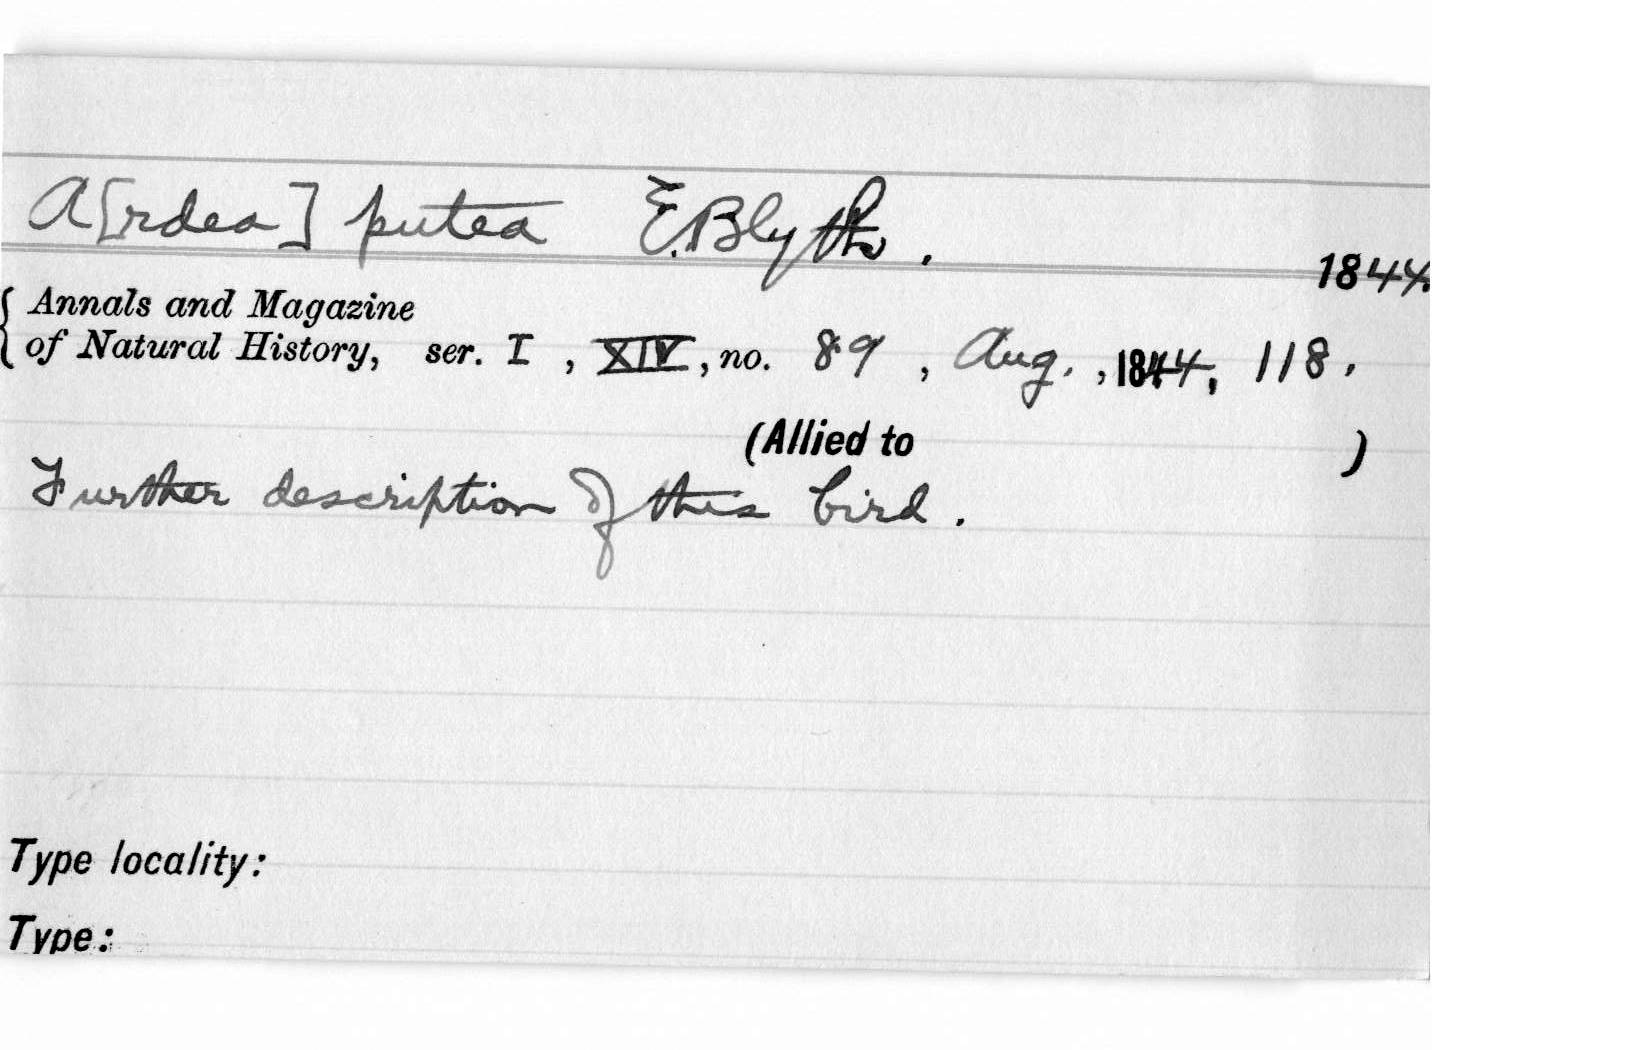 A[rdea] putea E. Blyth.
1844.
{ Annals and Magazine
of Natural History, ser. I, XIV, no. 89, Aug., 1844, 118.
(Allied to )
Further description of this bird.
Type locality:
Type: